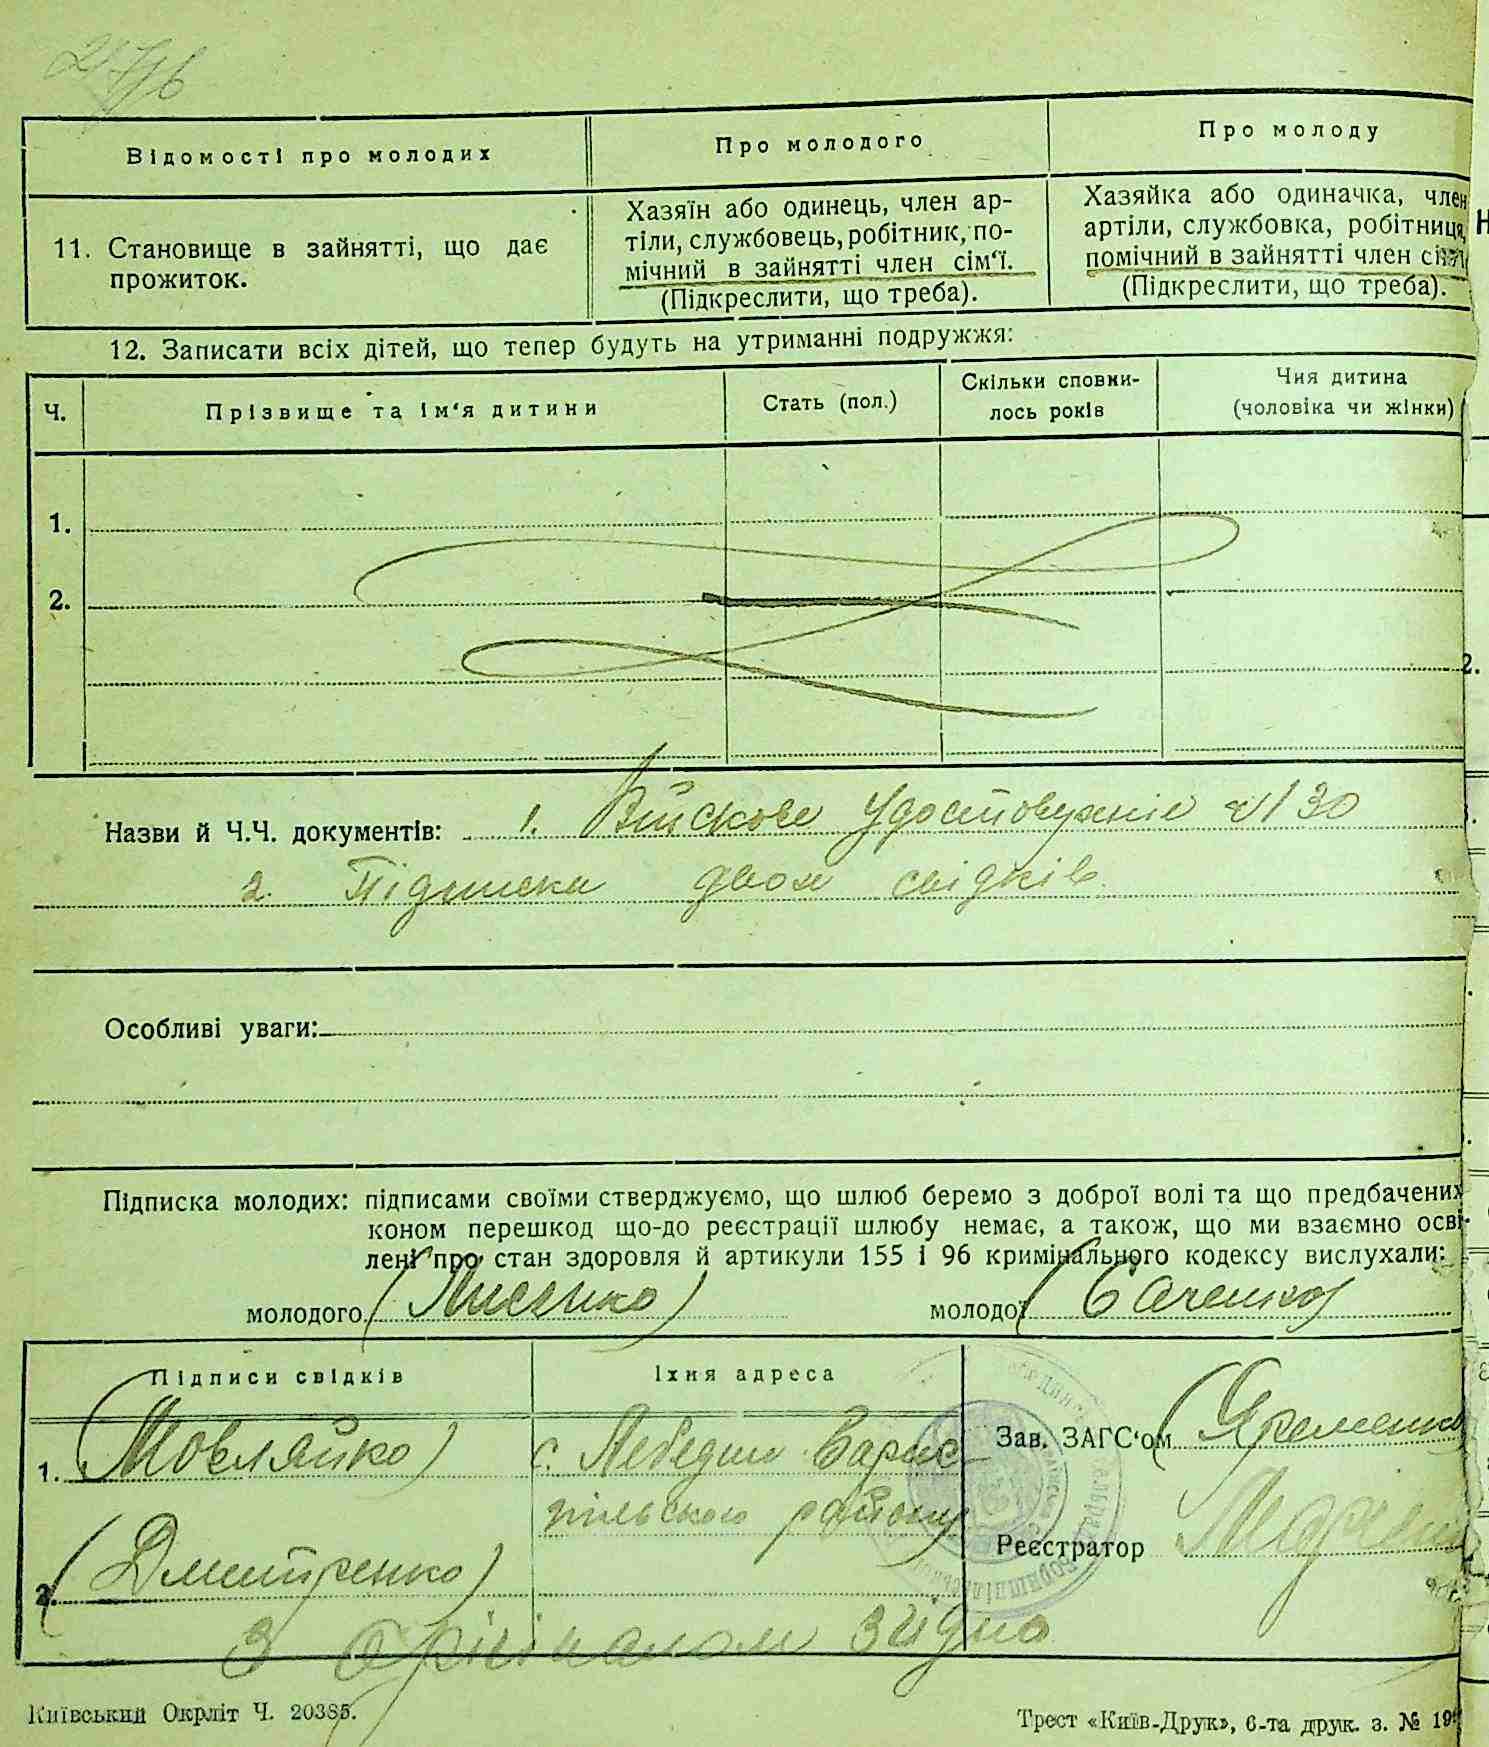 Відомості про молодих
Про молодого
Про молоду
11. Становище в зайнятті, що дає
прожиток.
Хазяїн або одинець, член ар-
тіли, службовець, робітник, по-
мічний в зайнятті член сім'ї.
(Підкреслити, що треба).
Хазяйка або одиначка, член
артіли, службовка, робітниця,
помічний в зайнятті член сім'ї
(Підкреслити, що треба).
12. Записати всіх дітей, що тепер будуть на утриманні подружжя:
Ч.
Прізвище та ім'я дитини
Стать (пол.)
Скільки сповни-
лось років
Чия дитина
(чоловіка чи жінки)
1.
2.
Назви й Ч.Ч. документів: 1. Війскове Удостовуреніе №130
2. Підписка двох свідків
Особливі уваги:
Підписка молодих: підписами своїми стверджуємо, що шлюб беремо з доброї волі та що предбачених
коном перешкод що-до реєстрації шлюбу немає, а також, що ми взаємно осві-
лені про стан здоровля й артикули 155 і 96 кримінального кодексу вислухали:
молодого (Лисенко) молодої (Саченко)
Підписи свідків
Їхня адреса
1. (Мовляйко)
с. Лебедин Барис
пільського району
Зав. ЗАГС'ом (Яременко
Реєстратор
2. (Дмитренко)
З орігіналом згідно
Київський Окрліт Ч. 20385.
Трест «Київ-Друк», 6-та друк. з. № 19